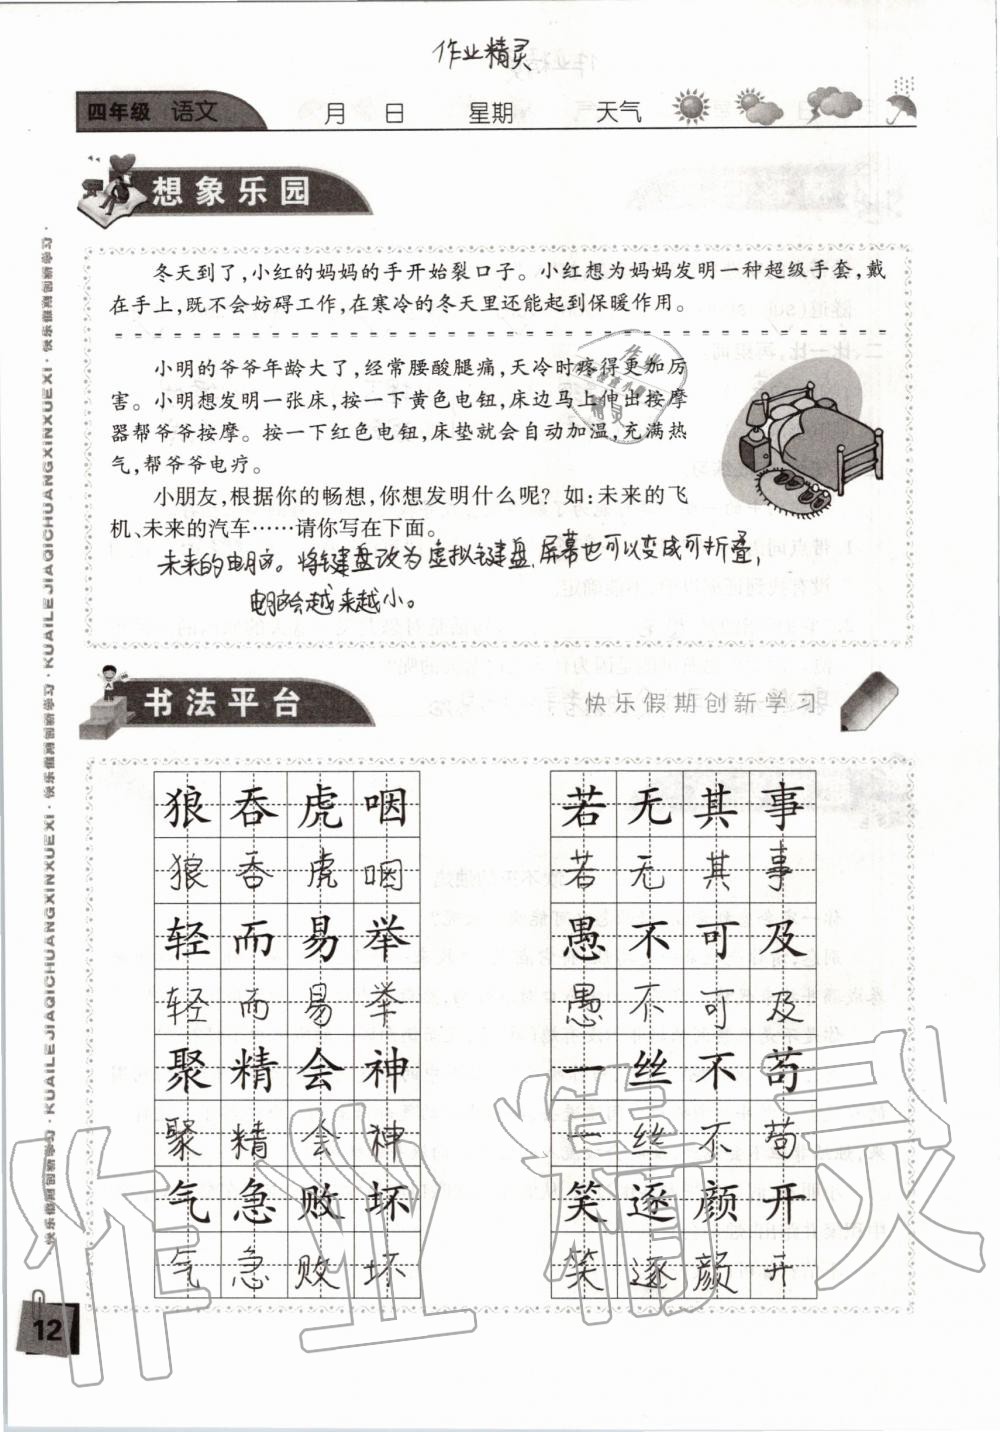 作业精灵
四年级 语文 月 日 星期 天气
想象乐园
冬天到了,小红的妈妈的手开始裂口子。小红想为妈妈发明一种超级手套,戴
在手上,既不会妨碍工作,在寒冷的冬天里还能起到保暖作用。
小明的爷爷年龄大了,经常腰酸腿痛,天冷时疼得更加厉
害。小明想发明一张床,按一下黄色电钮,床边马上伸出按摩
器帮爷爷按摩。按一下红色电钮,床垫就会自动加温,充满热
气,帮爷爷电疗。
小朋友,根据你的畅想,你想发明什么呢?如:未来的飞
机、未来的汽车……请你写在下面。
未来的电脑。将键盘改为虚拟键盘,屏幕也可以变成可折叠,
电脑会越来越小。
书法平台 快乐假期创新学习
狼吞虎咽 若无其事
狼吞虎咽 若无其事
轻而易举 愚不可及
轻而易举 愚不可及
聚精会神 一丝不苟
聚精会神 一丝不苟
气急败坏 笑逐颜开
气急败坏 笑逐颜开
快乐假期创新学习·KUAILEJIAQICHUANGXINXUEXI·快乐假期创新学习·KUAILEJIAQICHUANGXINXUEXI·快乐假期创新学习·
12
作业精灵